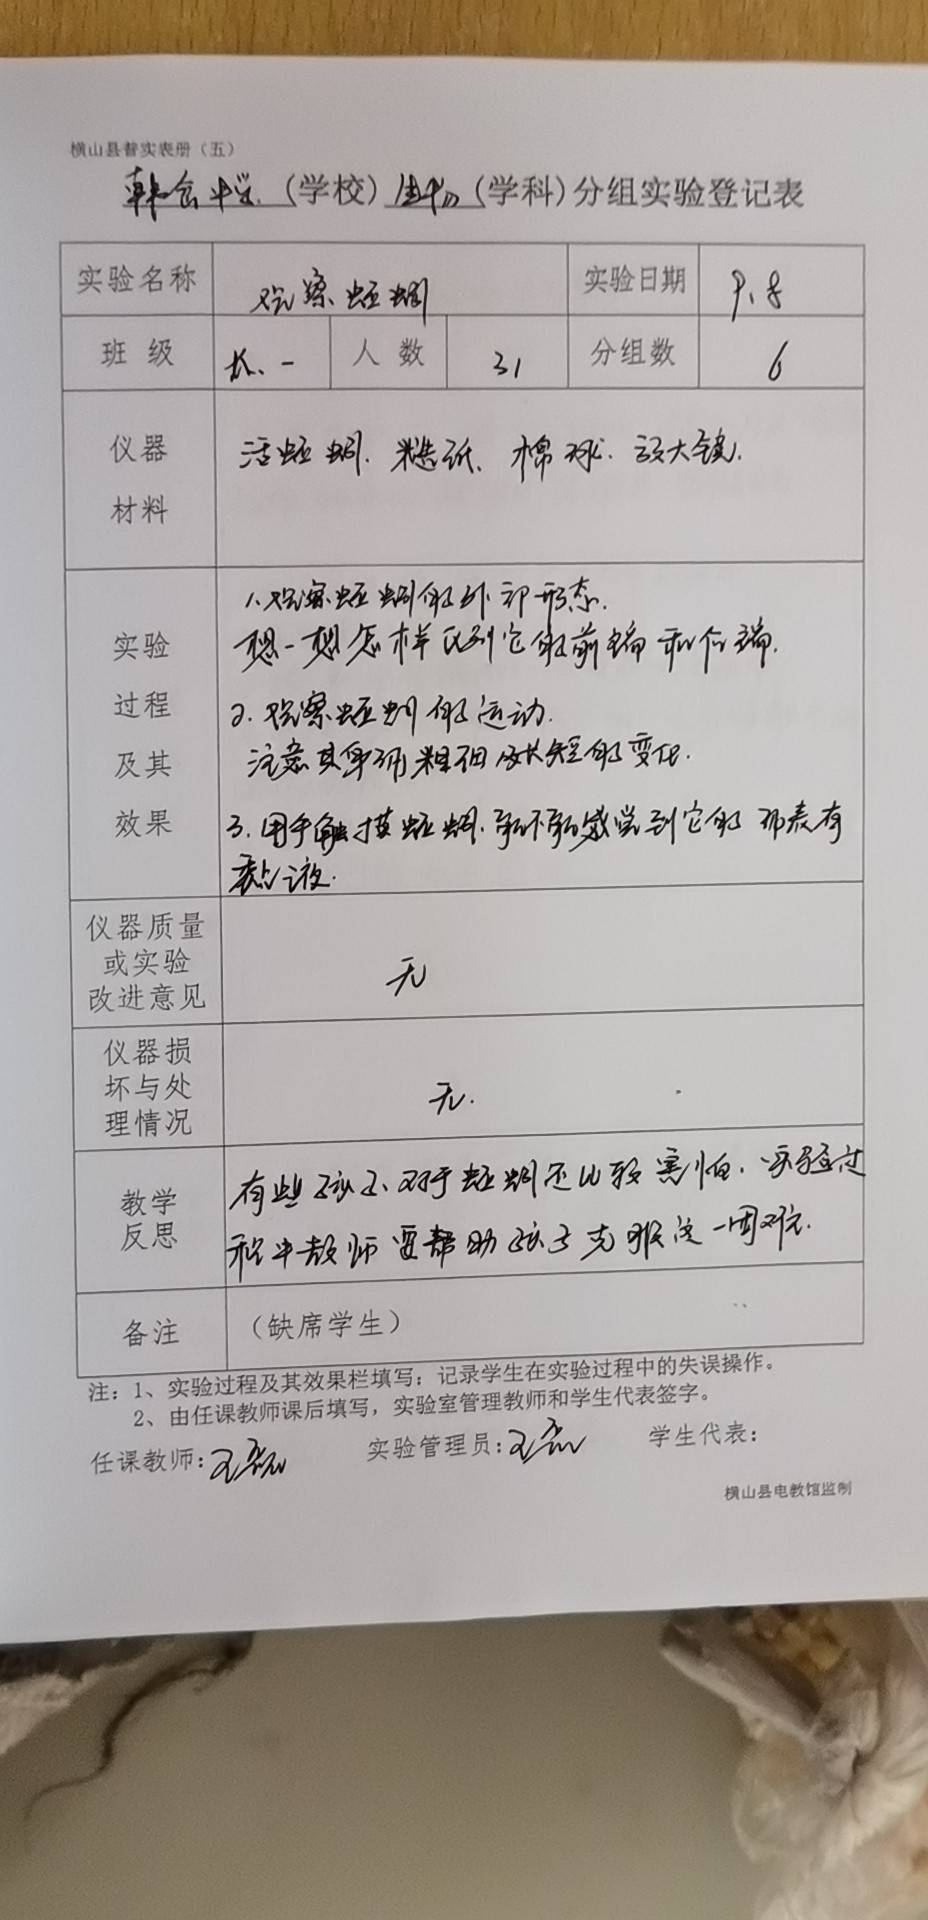 横山县普实表册（五）
韩会中学（学校）生物（学科）分组实验登记表
实验名称 观察蚯蚓 实验日期 9.8
班级 一 人数 31 分组数 6
仪器材料 活蚯蚓.糙纸.棉球.放大镜.
实验过程及其效果
1.观察蚯蚓的外部形态.
想一想怎样区别它的前端和后端.
2.观察蚯蚓的运动.
注意其身体粗细及长短的变化.
3.用手触摸蚯蚓.能不能感觉到它的体表有
黏液.
仪器质量或实验改进意见 无
仪器损坏与处理情况 无.
教学反思
有些孩子对于蚯蚓还比较害怕.实验过
程中教师要帮助孩子克服这一困难.
备注（缺席学生）
注：1、实验过程及其效果栏填写：记录学生在实验过程中的失误操作。
2、由任课教师课后填写，实验室管理教师和学生代表签字。
任课教师： 实验管理员： 学生代表：
横山县电教馆监制